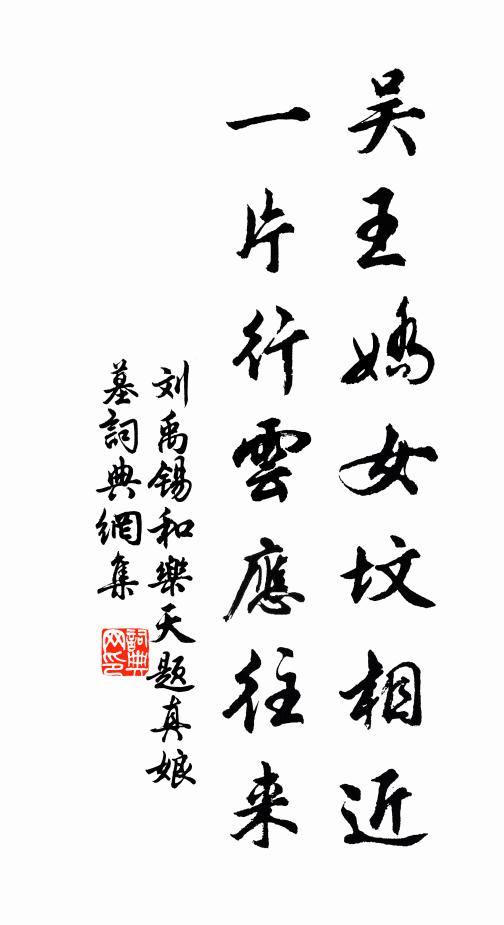 吴王嬌女坟相近
一片行雲應往来
刘禹锡和樂天題真娘
墓詞典網集
詞典
网印